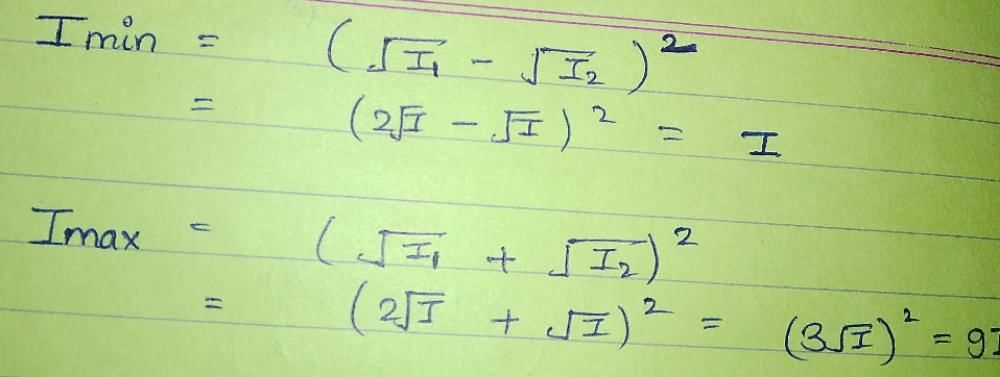 Imin = (√I₁ - √I₂)²
= (2√I - √I)² = I
Imax = (√I₁ + √I₂)²
= (2√I + √I)² = (3√I)² = 9I